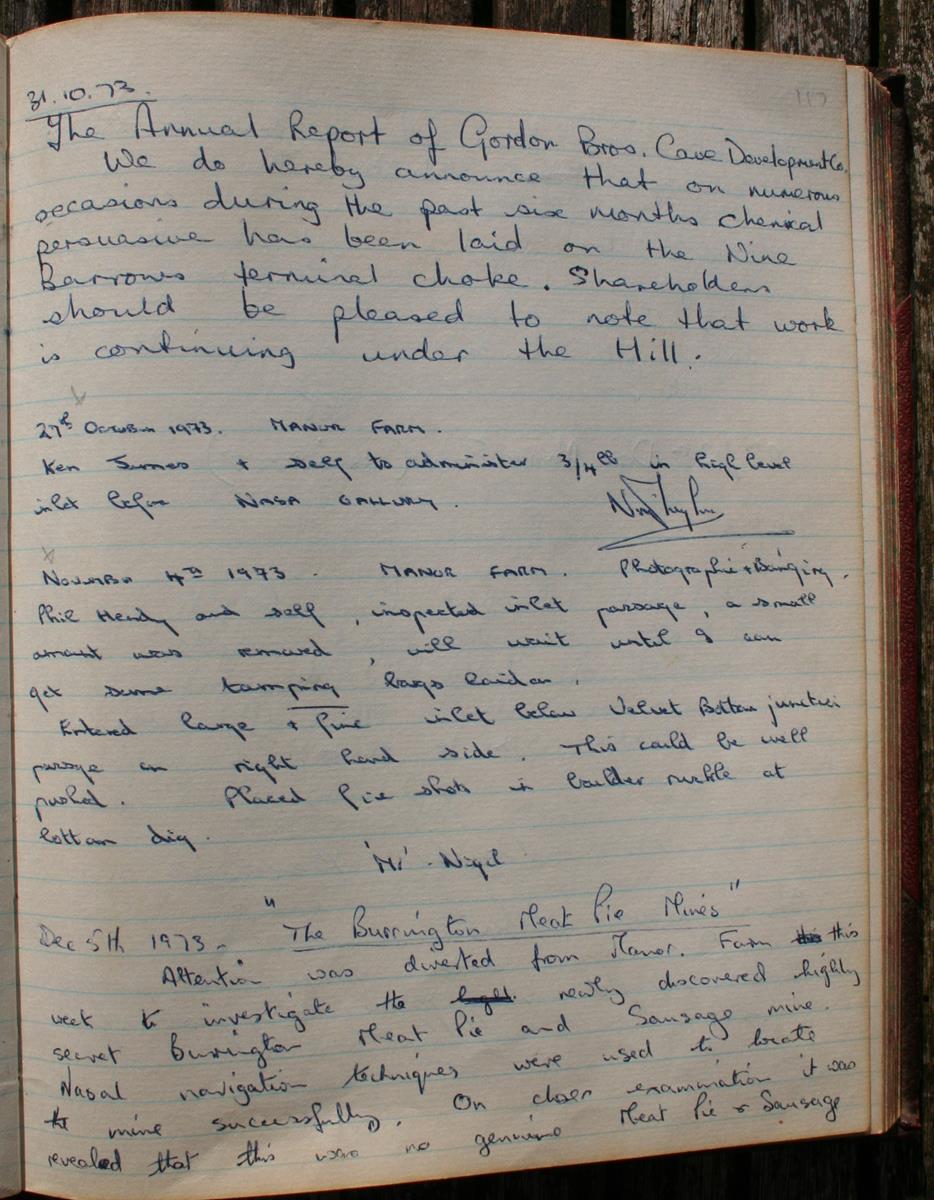 117
31.10.73.
The Annual Report of Gordon Bros. Cave Development Co.
We do hereby announce that on numerous
occasions during the past six months chemical
persuasive has been laid on the Nine
Barrows terminal choke. Shareholders
should be pleased to note that work
is continuing under the Hill.
27th October 1973. MANOR FARM.
Ken James + self to administer 3/4 lb in high level
inlet before NASA GALLERY.
November 4th 1973. MANOR FARM. Photographic + Banging.
Phil Hendy and self, inspected inlet passage, a small
amount was removed, will wait until I can
get some tamping bags laid on.
Entered large + fine inlet below Velvet Bottom junction
passage on right hand side. This could be well
pushed. Placed five shots in boulder ruckle at
bottom dig.
Nigel
Dec 5th 1973. "The Burrington Meat Pie Mines"
Attention was diverted from Manor. Farm this
week to investigate the newly discovered highly
secret Burrington Meat Pie and Sausage mine.
Nasal navigation techniques were used to locate
the mine successfully. On closer examination it was
revealed that this was no genuine Meat Pie & Sausage